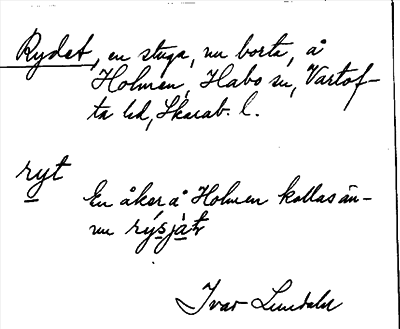 Rydet, en stuga, nu borta, å
Holmen, Habo sn, Vartof-
ta hd, Skarab. l.
ryt
En åker å Holmen kallas än-
nu rýsjàtr
Ivar Lundahl